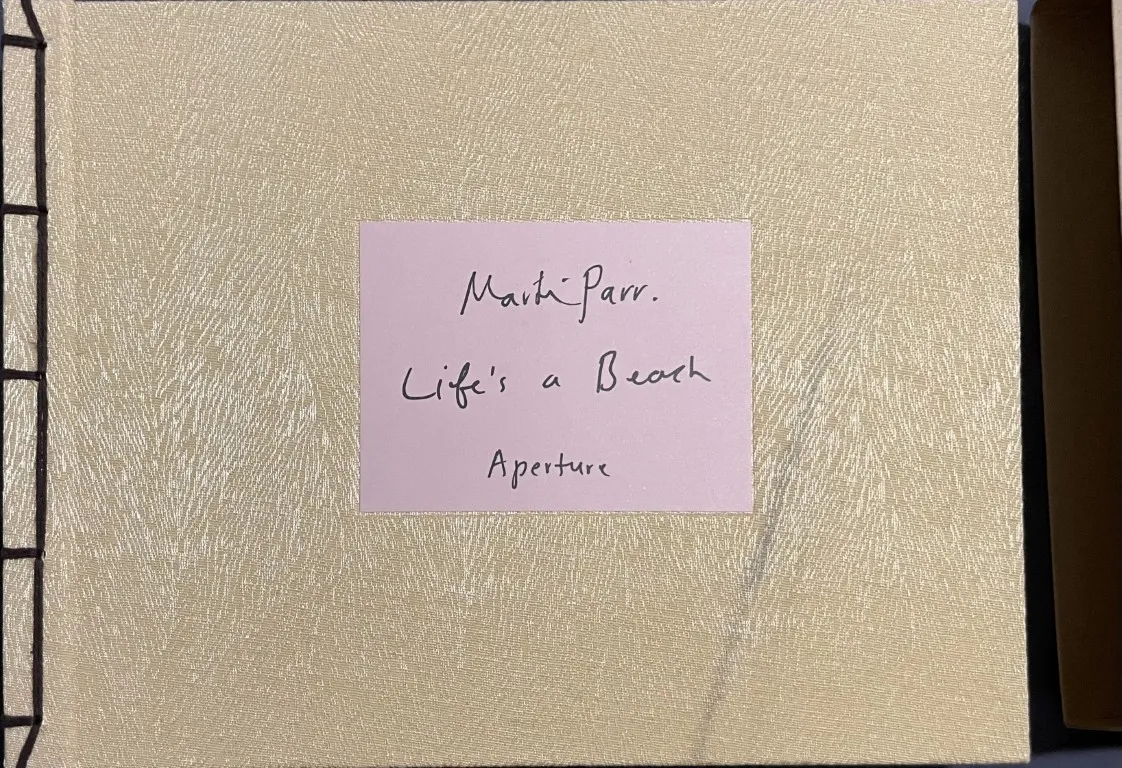 Martin Parr.
Life's a Beach
Aperture